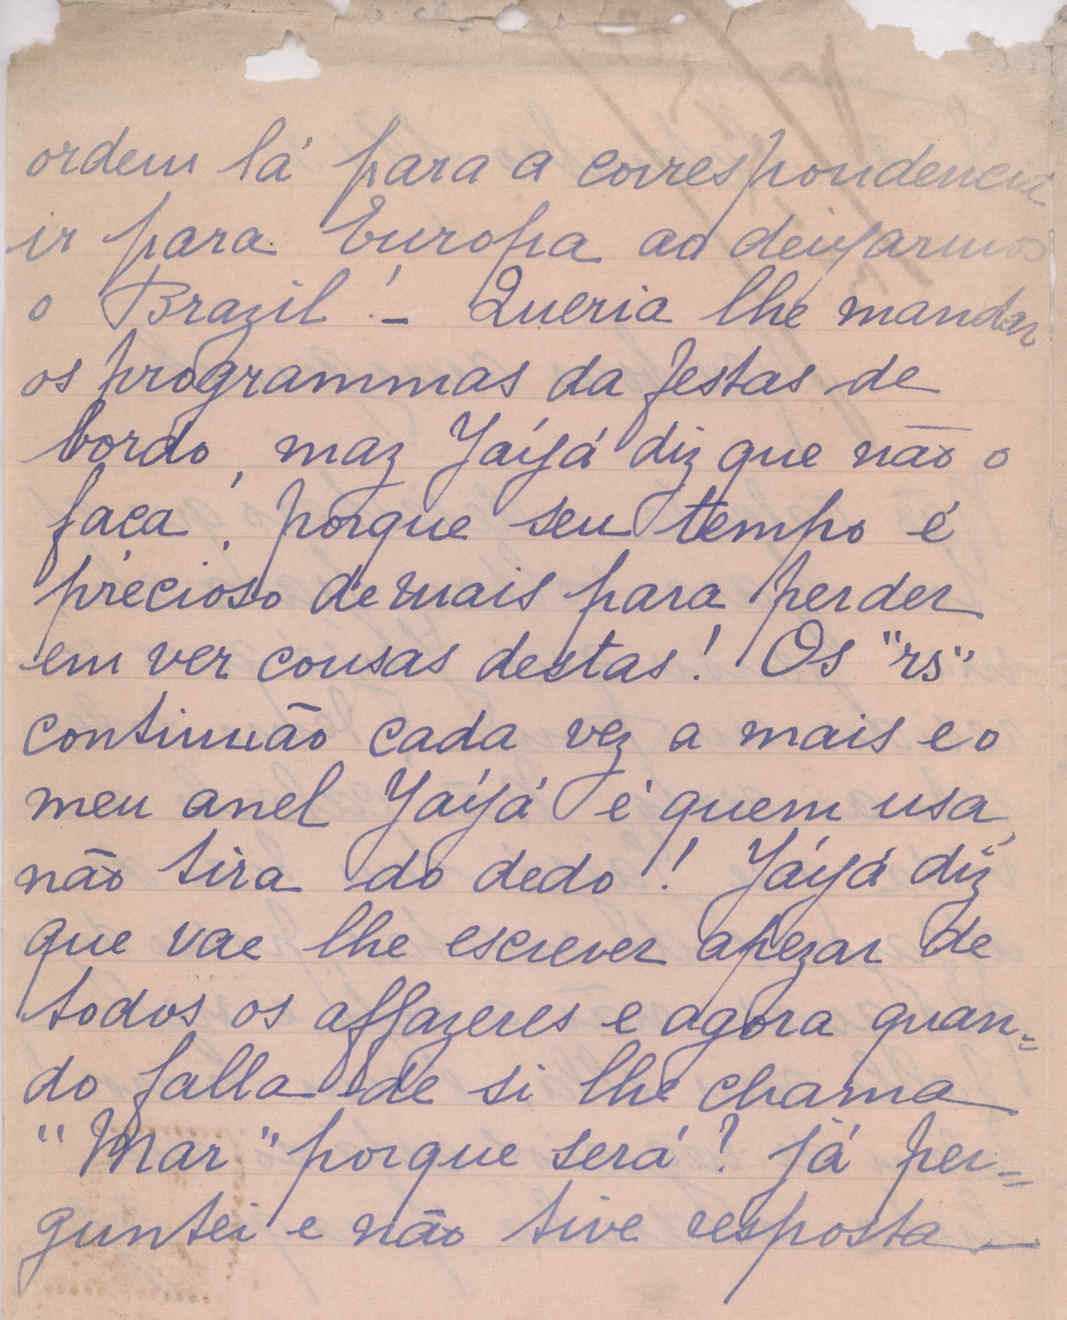 ordem lá para a correspondencia
ir para Europa ao deixarmos
o Brazil! _ Queria lhe mandar
os programmas da festas de
bordo, maz Yáyá diz que não o
faça, porque seu tempo é
précioso de mais para perder
em ver cousas destas! Os "rs"
continuão cada vez a mais e o
meu anel Yáyá é quem usa,
não tira do dedo! Yáyá diz
que vae lhe escrever apezar de
todos os affazeres e agora quan=
do falla de si lhe chama
"Mar" porque será? já per=
guntei e não tive resposta _